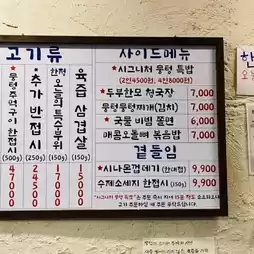 고기류
★뭉텅주먹구이 한접시 (500g) 47000
★추가 반접시 (250g) 24000
한정 오늘의 특수부위 (150g) 17000
육즙 삼겹살 (150g) 15000
사이드메뉴
★시그니처 뭉텅 특밥
(2인4500원, 4인8000원)
★두부한모 청국장 7,000
뭉텅뭉텅찌개(김치) 7,000
★국물 비빔 쫄면 6,000
매콤오돌뼈 볶음밥 7,000
곁들임
★시나몬껍데기 (한대접) 9,900
수제소세지 한접시 (150g) 9,900
한